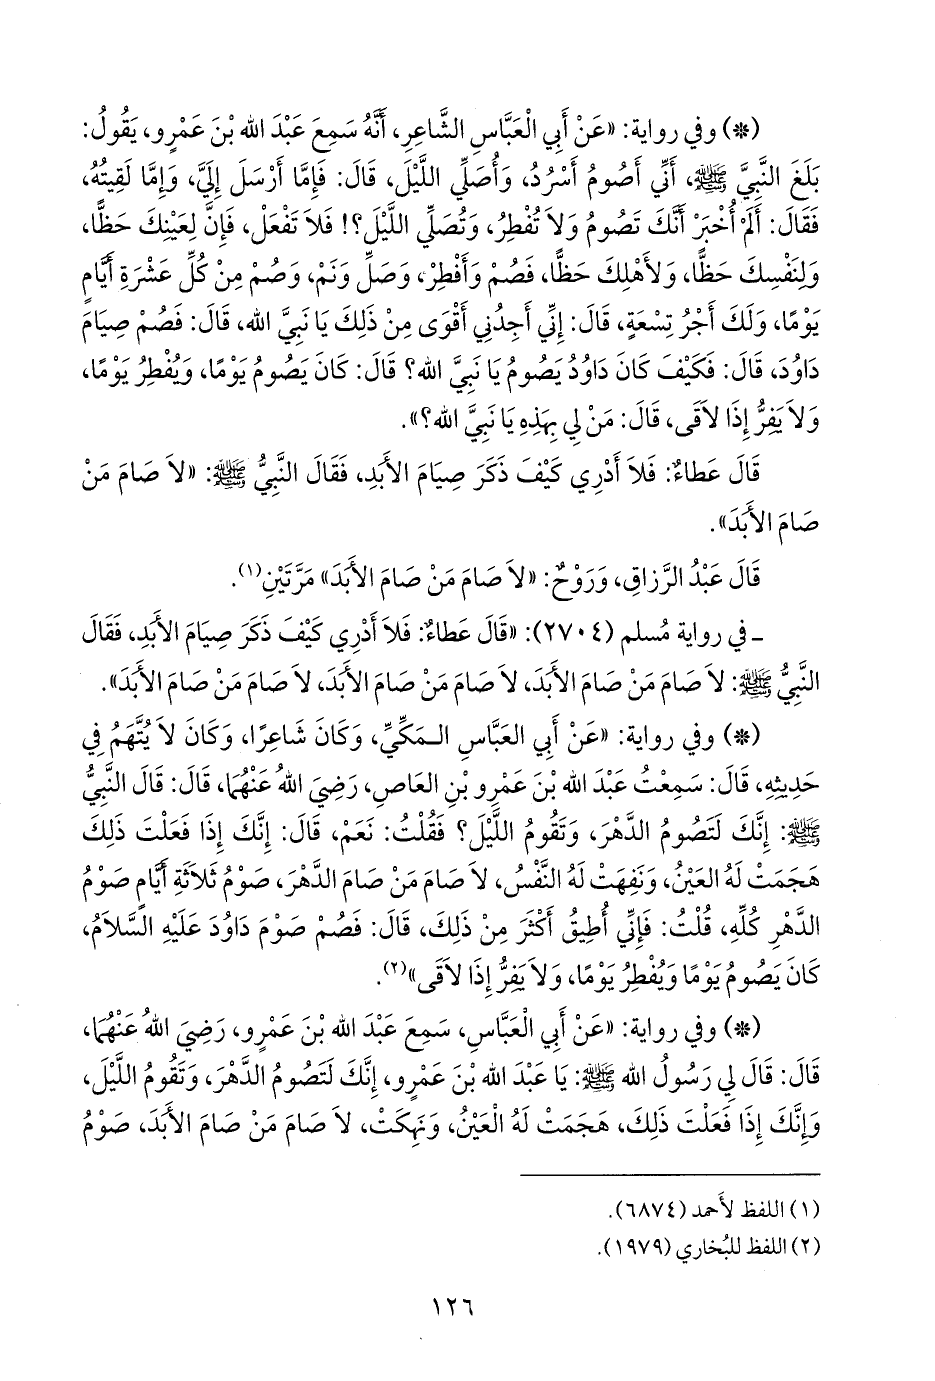 (*) وفي رواية: «عَنْ أَبِي الْعَبَّاسِ الشَّاعِرِ، أَنَّهُ سَمِعَ عَبْدَ الله بْنَ عَمْرٍو، يَقُولُ:
بَلَغَ النَّبِيَّ ﷺ، أَنِّي أَصُومُ أَسْرُدُ، وَأُصَلِّي اللَّيْلَ، قَالَ: فَإِمَّا أَرْسَلَ إِلَيَّ، وَإِمَّا لَقِيتُهُ،
فَقَالَ: أَلَمْ أُخْبَرْ أَنَّكَ تَصُومُ وَلاَ تُفْطِرُ، وَتُصَلِّي اللَّيْلَ؟! فَلاَ تَفْعَلْ، فَإِنَّ لِعَيْنِكَ حَظًّا،
وَلِنَفْسِكَ حَظًّا، وَلأَهْلِكَ حَظًّا، فَصُمْ وَأَفْطِرْ، وَصَلِّ وَنَمْ، وَصُمْ مِنْ كُلِّ عَشَرَةِ أَيَّامٍ
يَوْمًا، وَلَكَ أَجْرُ تِسْعَةٍ، قَالَ: إِنِّي أَجِدُنِي أَقْوَى مِنْ ذَلِكَ يَا نَبِيَّ الله، قَالَ: فَصُمْ صِيَامَ
دَاوُدَ، قَالَ: فَكَيْفَ كَانَ دَاوُدُ يَصُومُ يَا نَبِيَّ الله؟ قَالَ: كَانَ يَصُومُ يَوْمًا، وَيُفْطِرُ يَوْمًا،
وَلاَ يَفِرُّ إِذَا لاَقَى، قَالَ: مَنْ لِي بِهَذِهِ يَا نَبِيَّ الله؟».
قَالَ عَطَاءٌ: فَلاَ أَدْرِي كَيْفَ ذَكَرَ صِيَامَ الأَبَدِ، فَقَالَ النَّبِيُّ ﷺ: «لاَ صَامَ مَنْ
صَامَ الأَبَدَ».
قَالَ عَبْدُ الرَّزاقِ، وَرَوْحٌ: «لاَ صَامَ مَنْ صَامَ الأَبَدَ» مَرَّتَيْنِ(١).
ـ في رواية مُسلم (٢٧٠٤): «قَالَ عَطَاءٌ: فَلاَ أَدْرِي كَيْفَ ذَكَرَ صِيَامَ الأَبَدِ، فَقَالَ
النَّبِيُّ ﷺ: لاَ صَامَ مَنْ صَامَ الأَبَدَ، لاَ صَامَ مَنْ صَامَ الأَبَدَ، لاَ صَامَ مَنْ صَامَ الأَبَدَ».
(*) وفي رواية: «عَنْ أَبِي العَبَّاسِ الـمَكِّيِّ، وَكَانَ شَاعِرًا، وَكَانَ لاَ يُتَّهَمُ فِي
حَدِيثِهِ، قَالَ: سَمِعْتُ عَبْدَ الله بْنَ عَمْرِو بْنِ العَاصِ، رَضِيَ اللهُ عَنْهُمَا، قَالَ: قَالَ النَّبِيُّ
ﷺ: إِنَّكَ لَتَصُومُ الدَّهْرَ، وَتَقُومُ اللَّيْلَ؟ فَقُلْتُ: نَعَمْ، قَالَ: إِنَّكَ إِذَا فَعَلْتَ ذَلِكَ
هَجَمَتْ لَهُ العَيْنُ، وَنَفِهَتْ لَهُ النَّفْسُ، لاَ صَامَ مَنْ صَامَ الدَّهْرَ، صَوْمُ ثَلاَثَةِ أَيَّامٍ صَوْمُ
الدَّهْرِ كُلِّهِ، قُلْتُ: فَإِنِّي أُطِيقُ أَكْثَرَ مِنْ ذَلِكَ، قَالَ: فَصُمْ صَوْمَ دَاوُدَ عَلَيْهِ السَّلاَمُ،
كَانَ يَصُومُ يَوْمًا وَيُفْطِرُ يَوْمًا، وَلاَ يَفِرُّ إِذَا لاَقَى»(٢).
(*) وفي رواية: «عَنْ أَبِي الْعَبَّاسِ، سَمِعَ عَبْدَ الله بْنَ عَمْرٍو، رَضِيَ اللهُ عَنْهُمَا،
قَالَ: قَالَ لِي رَسُولُ الله ﷺ: يَا عَبْدَ الله بْنَ عَمْرٍو، إِنَّكَ لَتَصُومُ الدَّهْرَ، وَتَقُومُ اللَّيْلَ،
وَإِنَّكَ إِذَا فَعَلْتَ ذَلِكَ، هَجَمَتْ لَهُ الْعَيْنُ، وَنَهِكَتْ، لاَ صَامَ مَنْ صَامَ الأَبَدَ، صَوْمُ
(١) اللفظ لأَحمد (٦٨٧٤).
(٢) اللفظ للبُخاري (١٩٧٩).
١٢٦